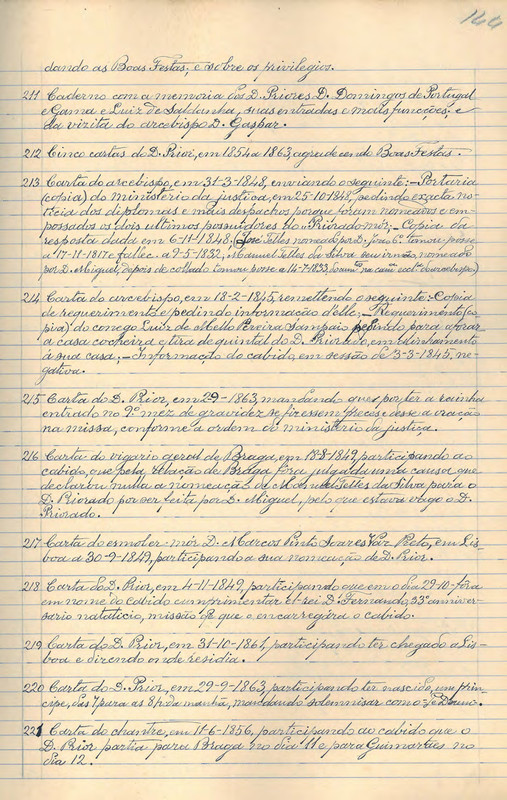 144
dando as Boas Festas; e sobre os privilegios.
211 Caderno com a memoria dos D. Priores D. Domingos de Portugal
e Gama e Luiz de Saldanha, suas entradas e mais funcções, e
da vizita do arcebispo D. Gaspar.
212 Cinco cartas do D. Prior, em 1854 a 1863, agradecendo Boas Festas.
213 Carta do arcebispo, em 31-3-1848, enviando o seguinte:- Portaria
(copia) do ministerio da justiça, em 25-10-1848, pedindo exacta no-
ticia dos diplomas e mais despachos porque foram nomeados e em-
possados os dois ultimos possuidores do "Priorado mór;- Copia da
resposta dada em 6-11-1848. (José Telles nomeado por D. João 6º tomou posse
a 17-11-1817 e fallec. a 9-5-1832, Manuel Telles da Silva seu irmão, nomeado
por D. Miguel, depois de collado tomou posse a 14-7-1833,
214 Carta do arcebispo, em 18-2-1845, remettendo o seguinte:- Copia
de requerimento e pedindo informação d'elle;- Requerimento (co-
pia) do conego Luiz de Mello Pereira Sampaio pedindo para aforar
a casa cocheira e tira de quintal do D. Priorado, em alinhamento
á sua casa;- Informação do cabido em sessão de 3-3-1845, ne-
gativa.
215 Carta do D. Prior, em 29- -1863, mandando que, por ter a rainha
entrado no 9º mez de gravidez se fizessem preces e desse a oração
na missa, conforme a ordem do ministerio da justiça.
216 Carta do vigario geral de Braga, em 18-8-1849, participando ao
cabido, que pela relação de Braga fôra julgada uma causa, que
declarou nulla a nomeação de Manuel Telles da Silva para o
D. Priorado por ser feita por D. Miguel, pelo que estava vago o D.
Priorado.
217 Carta do esmoler-mór D. Marcos Pinto Soares Vaz Preto, em Lis-
boa a 30-9-1849, participando a sua nomeação de D. Prior.
218 Carta do D. Prior, em 4-11-1849, participando que em o dia 29-10- fôra
em nome do cabido cumprimentar el-rei D. Fernando, 33º anniver-
sario natalicio, missão de que o encarregára o cabido.
219 Carta do D. Prior, em 31-10-1861, participando ter chegado a Lis-
boa e dizendo onde residia.
220 Carta do D. Prior, em 29-9-1863, participando ter nascido, um prin-
cipe, das 7 para as 8 h. da manhã, mandando solemnisar com o Te-Deum.
221 Carta do chantre, em 11-6-1856, participando ao cabido que o
D. Prior partia para Braga no dia 11 e para Guimarães no
dia 12.